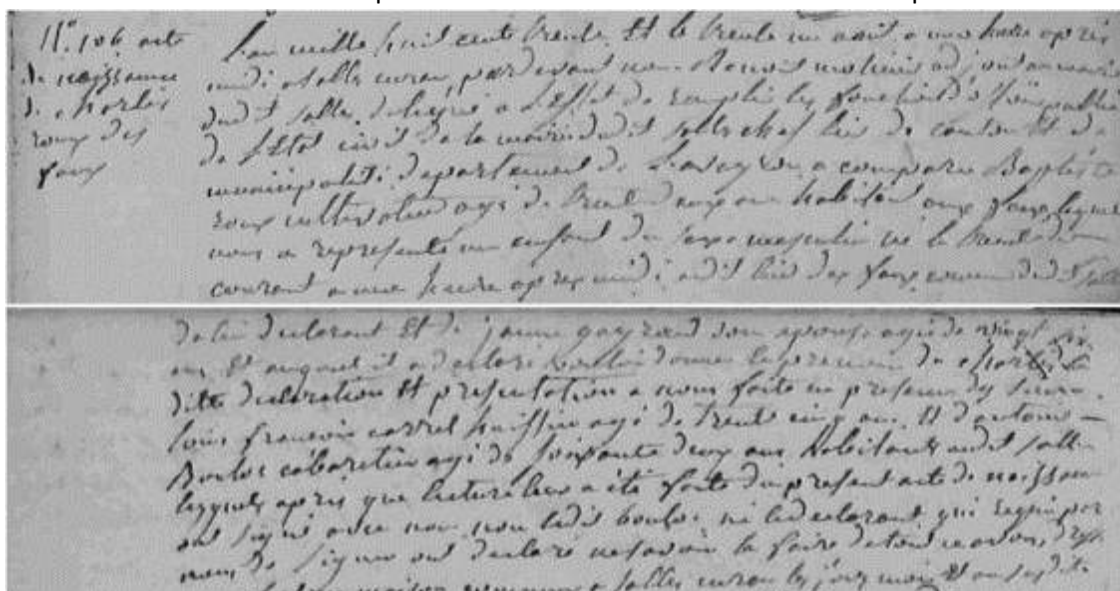 N° 106 acte
de naissance
de charles
roux des
faux
L'an mille huit cents trente Et le trente un aout a une heure aprés
midi a salles curan, pardevant nous Benoit molinié adjoint au maire
dudit salles delegué a l'Effet de remplir les fonctions d'officier public
de l'Etat civil de la mairie dudit salles chef lieu de canton Et de
municipalité departement de Laveyron a comparu Baptiste
roux cultivateur agé de trente deux ans habitant aux faux lequel
nous a représenté un enfant du sexe masculin né le trente du
courant a une heure apres midi audit lieu des faux commune dudit salles
de lui declarant Et de jeanne gayraud son epouse agée de vingt six
ans Et auquel il a declaré vouloir donner le prenom de charles la
ditte declaration Et presentation a nous faite en presence des sieurs
louis francois carrel huissier agé de trente cinq ans Et d'antoine
Boulos cabaretier agé de soixante deux ans habitants audit salles
lesquels aprés que lecture leur a été faite du present acte de naissance
ont signé avec nous non ledit boulos ni le declarant qui requis par
nous de signer ont declaré ne savoir le faire de tout ce dessus
maison commune a salles curan les jour mois Et an susdits